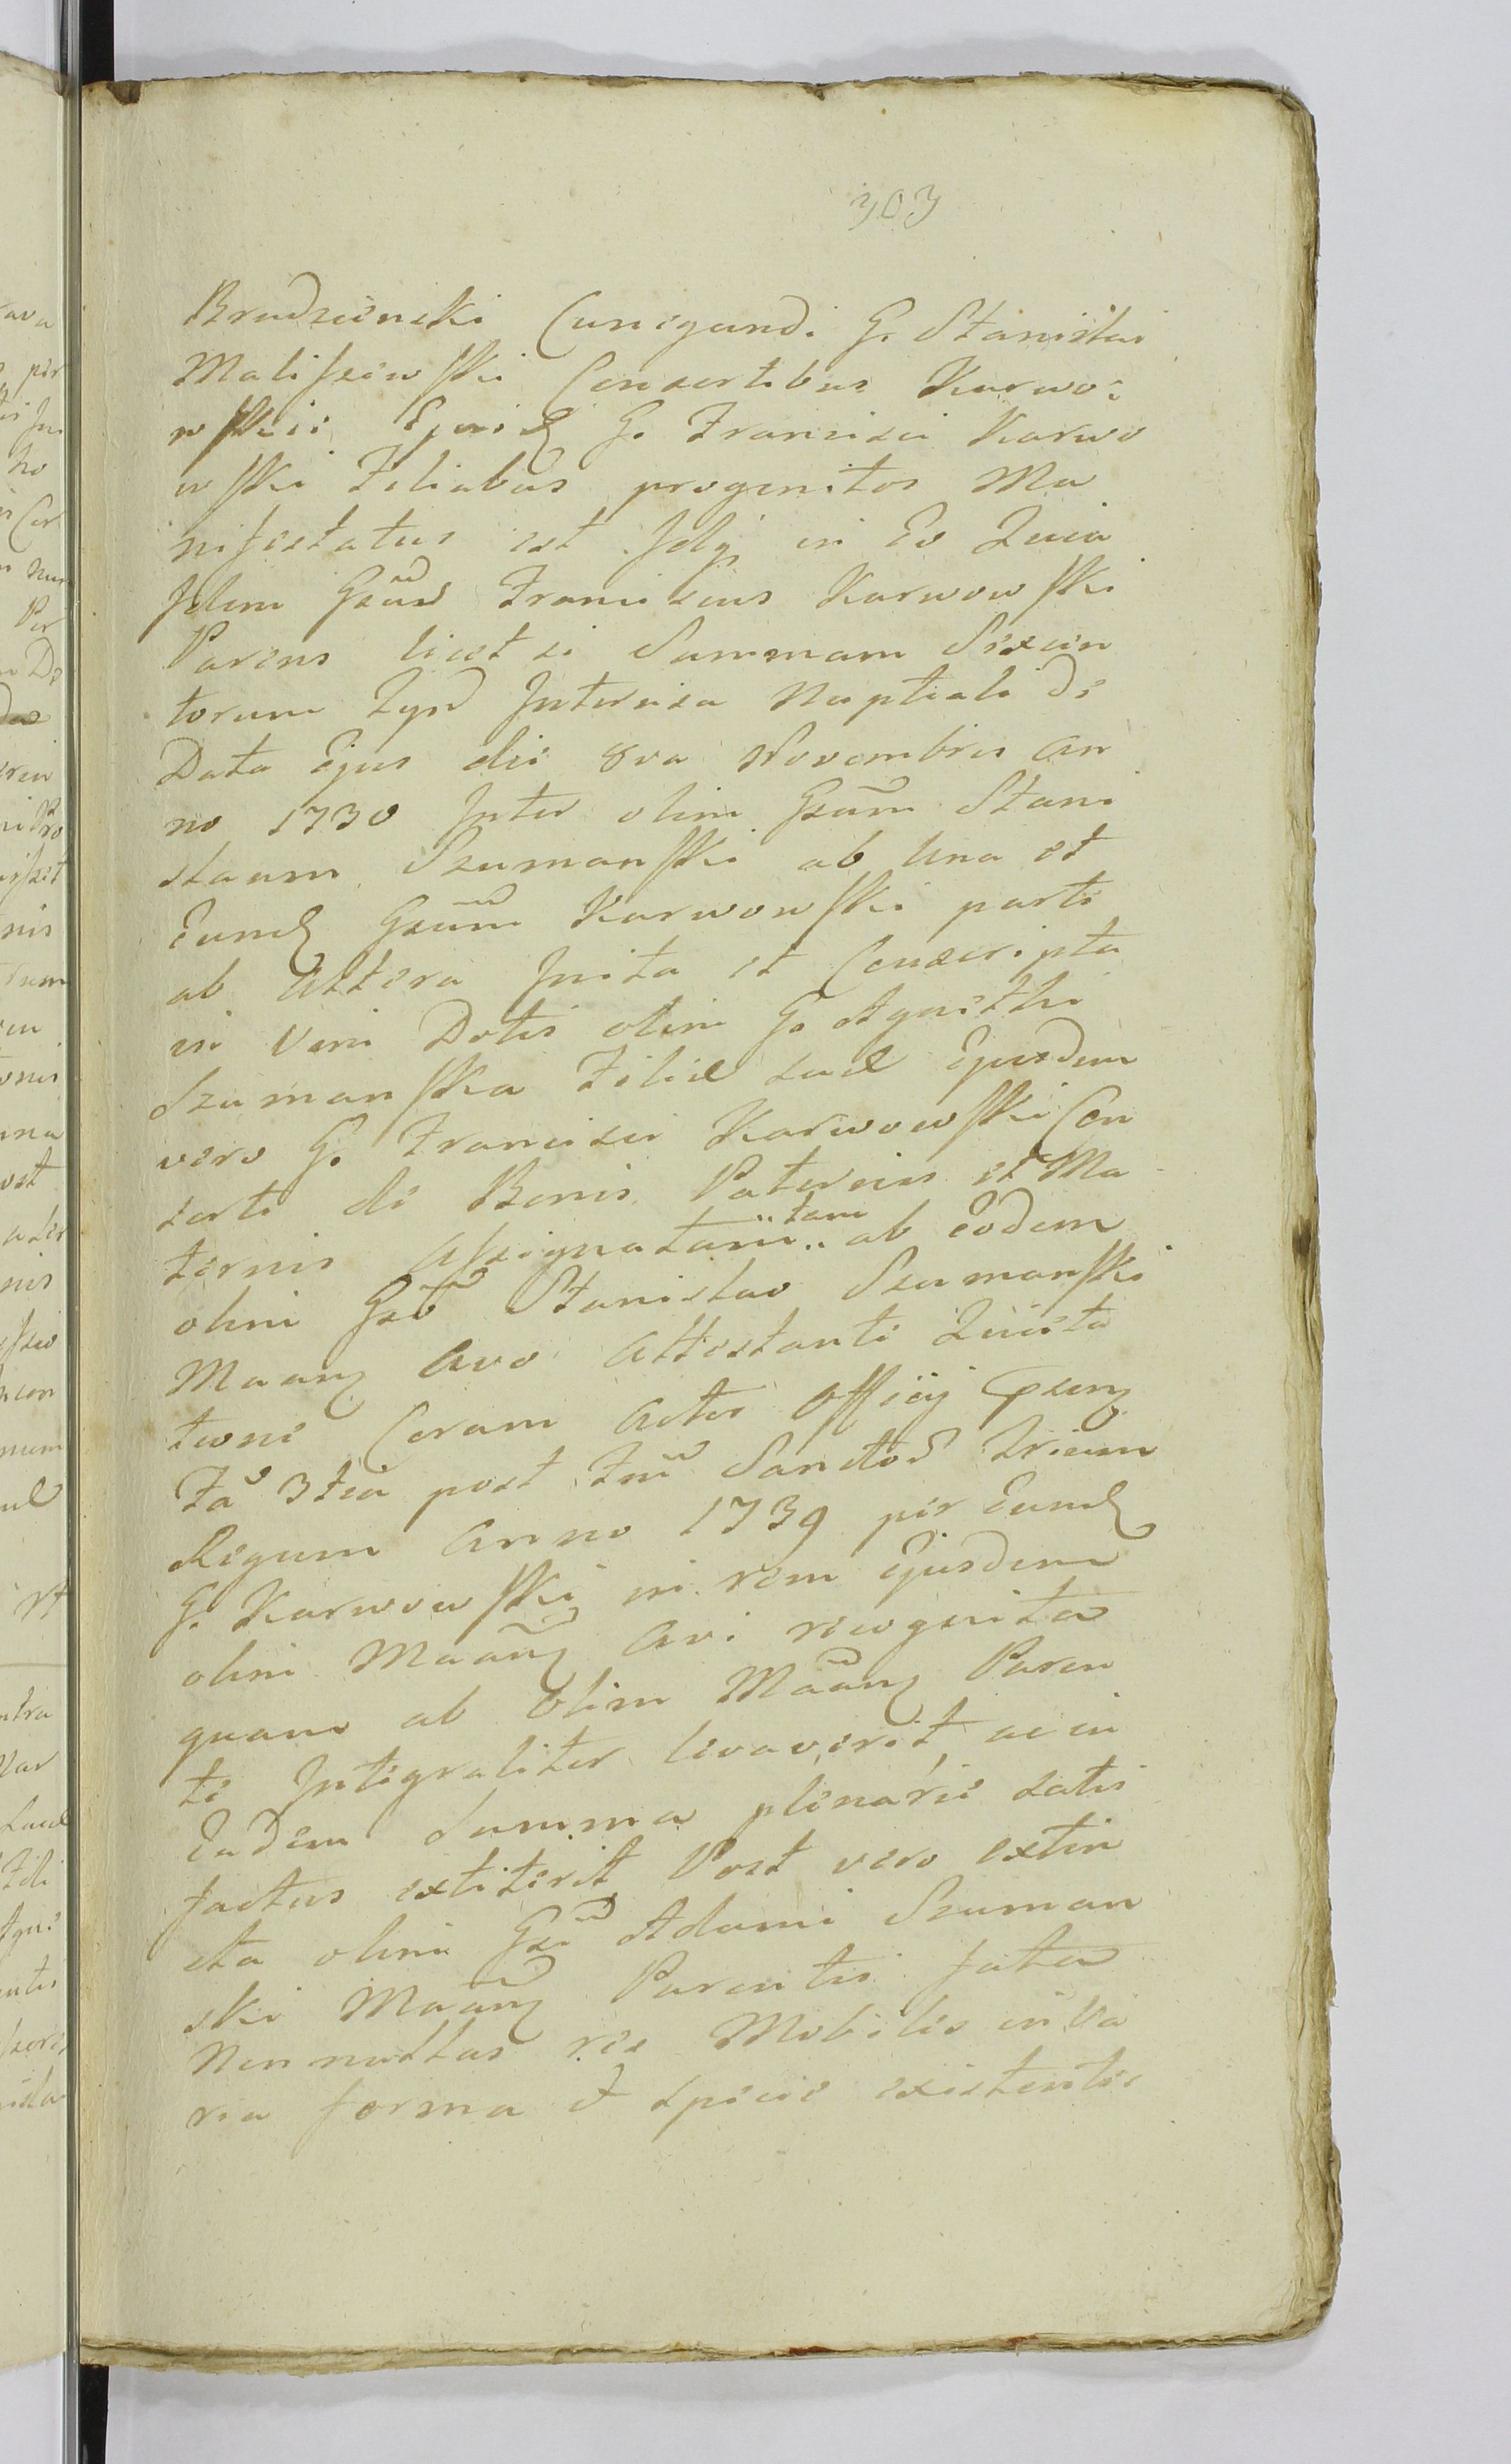 303
Brudzienski Cunegundi G. Stanislai
Maliszewski Consortibus Karwo:
wskii Ejusd G. Francisci Karwo
wski Filiabus progenitos Ma
nifestatus est Idq in Eo Quia
Idem Gsus Franciscus Karwowski
Parens licet si Summam Sexcen
torum Typ Intercisa Nuptiali de
Data Ejus die 8va Novembris An
no 1730 Inter olim Gsum Stani
slaum Szumanski ab Una et
Eund Gsum Karwowski parte
ab Altera Inita et Conscripta
in Vim Dotis olim G. Agnethi
Szumanska Filiæ suæ Ejusdem
vero G. Francisci Karwowski Con
sorti de Bonis Paternis et Ma
ternis Assignatam tam ab Eodem
olim Gso Stanislao Szumanski
Maanq Avo Attestanti Quieta
tione Coram Actis Officij Gsenq
Fa 3tia post Fm Sanctos Trium
Regum Anno 1739 per Eund
G. Karwowski in rem Ejusdem
olim Maanq Avi recognita
quam ab Olim Maanq Paren
te Integraliter levaverit ac in
Eadem Summa plenarie satis
factus extiterit Post vero extin
cta olim Gsi Adami Szuman
ski Maanq Parentis fata
Nonnullas res Mobiles in Va
ria forma et specie existentes